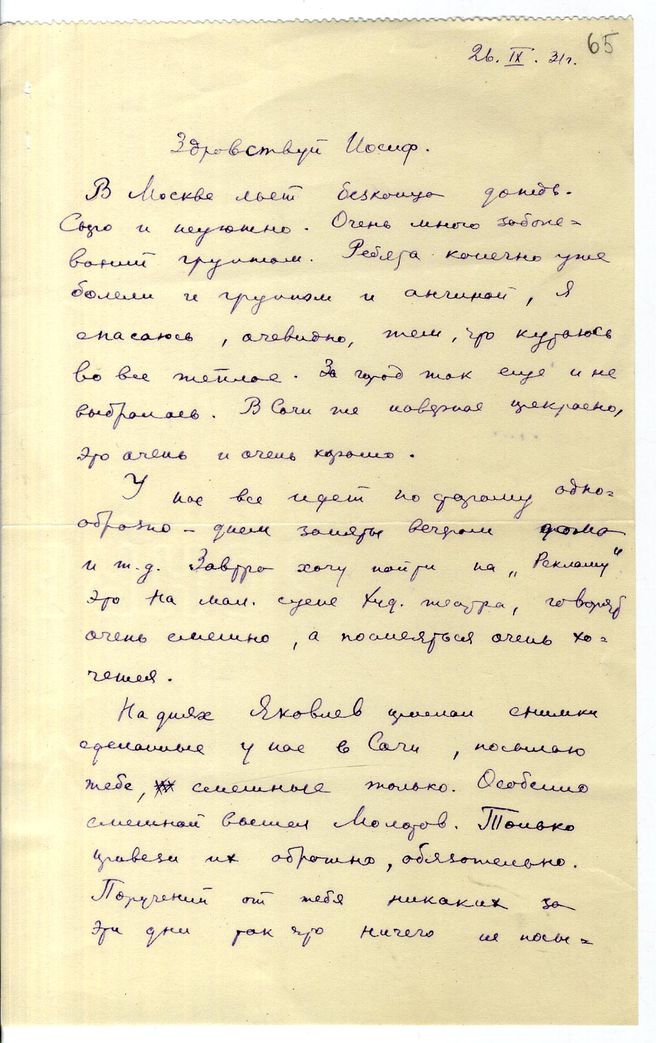 65
26. IX. 31г.
Здравствуй Иосиф.
В Москве льет безконца дождь.
Сыро и неуютно. Очень много заболе=
ваний гриппом. Ребята конечно уже
болели и гриппом и ангиной, я
спасаюсь, очевидно, тем, что кутаюсь
во все теплое. За город так еще и не
выбралась. В Сочи же наверное прекрасно,
это очень и очень хорошо.
У нас все идет по старому одно=
образно – днем заняты вечером дома
и т.д. Завтра хочу пойти на „Рекламу"
это на мал. сцене Худ. театра, говорят
очень смешно, а посмеяться очень хо=
чется.
На днях Яковлев прислал снимки
сделанные у нас в Сочи, посылаю
тебе, смешные только. Особенно
смешной вышел Молотов. Только
привези их обратно, обязательно.
Поручений от тебя никаких за
эти дни так что ничего не посы=